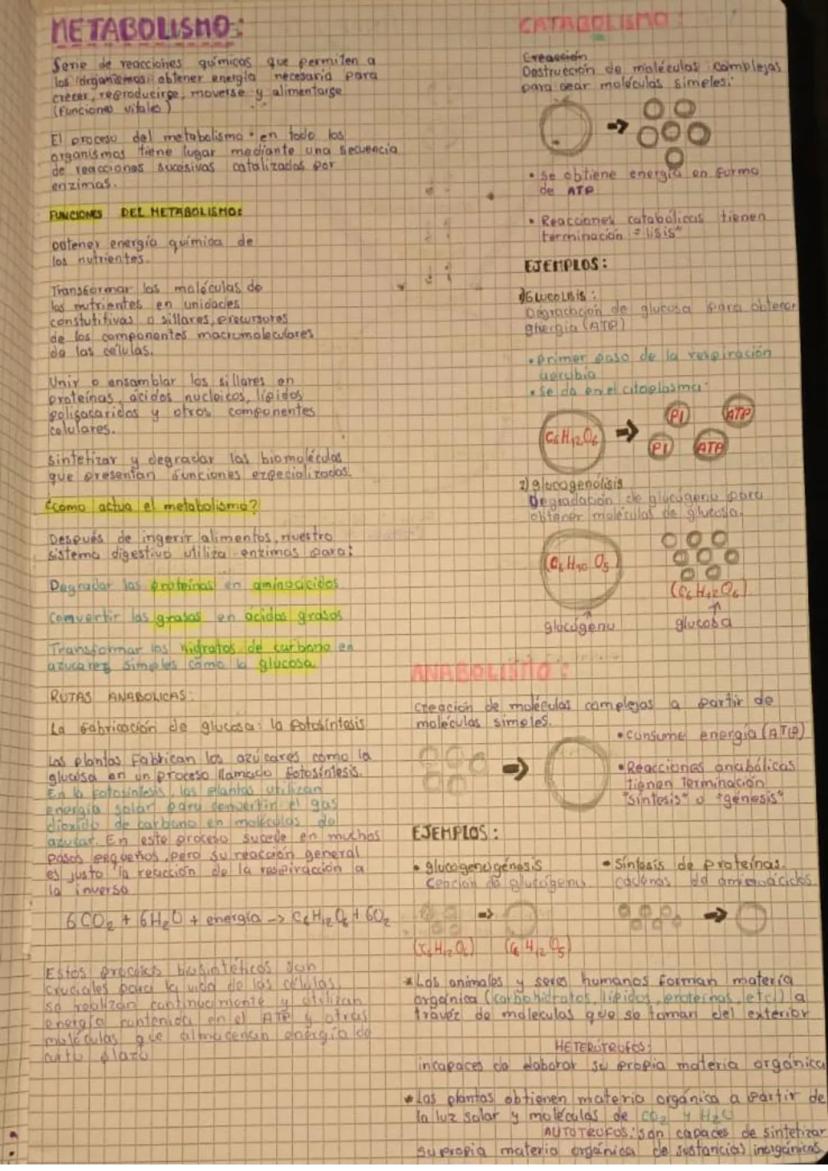 METABOLISMO:
Serie de reacciones químicas que permiten a
los organismos obtener energía necesaria para
crecer, reproducirse, moverse y alimentarse
(funciones vitales)
El proceso del metabolismo en todo los
organismos tiene lugar mediante una secuencia
de reacciones sucesivas catalizadas por
enzimas.
FUNCIONES DEL METABOLISMO:
obtener energía química de
los nutrientes.
Transformar las moléculas de
los nutrientes en unidades
constutitivas o sillares, precursores
de los componentes macromoleculares
de las células.
Unir o ensamblar los sillares en
proteínas, ácidos nucleicos, lípidos
polisacaridos y otros componentes
celulares.
sintetizar y degradar las biomoléculas
que presentan funciones especializadas.
¿como actua el metabolismo?
Después de ingerir alimentos, nuestro
sistema digestivo utiliza enzimas para:
Degradar las proteínas en aminoácidos
Convertir las grasas en ácidos grasos
Transformar los hidratos de carbono en
azucares simples como la glucosa
RUTAS ANABOLICAS:
La fabricación de glucosa: la fotosíntesis
Las plantas fabrican los azúcares como la
glucosa en un proceso llamado fotosíntesis.
En la fotosíntesis, las plantas utilizan
energía solar para convertir el gas
dioxido de carbono en moléculas de
azucar. En este proceso sucede en muchos
pasos pequeños, pero su reacción general
es justo la reacción de la respiración a
la inversa
6CO₂ + 6H₂O + energía -> C₆H₁₂O₆ + 6O₂
Estos procesos biosintéticos son
cruciales para la vida de las células,
se realizan continuamente y utilizan
energía contenida en el ATP y otras
moléculas que almacenan energía de
corto plazo
CATABOLISMO:
Creacción
Destrucción de moléculas complejas
para crear moléculas simeles.
• se obtiene energía en forma
de ATP
• Reacciones catabólicas tienen
terminación "lisis"
EJEMPLOS:
1) Glucolisis:
Degradación de glucosa para obtener
energía (ATP)
• primer paso de la respiración
aerubia
• Se da en el citoplasma
C₆H₁₂O₆ → Pi ATP
Pi ATP
2) glucogenólisis
Degradación de glucógeno para
obtener moléculas de glucosa.
(C₆H₁₀O₅)
(C₆H₁₂O₆)
glucógeno glucosa
ANABOLISMO:
Creación de moléculas complejas a partir de
moléculas simeles.
• Consume energía (ATP)
• Reacciones anabólicas
tienen terminación
"síntesis" o "génesis"
EJEMPLOS:
• glucogenogénesis
Creación de glucógeno
• Síntesis de proteínas.
cadenas de aminoácidos
(C₆H₁₂O₆) (C₆H₁₂O₅)
• Los animales y seres humanos forman materia
orgánica (carbohidratos, lípidos, proteínas, etc.) a
travéz de moleculas que se toman del exterior
HETERÓTROFOS:
incapaces de elaborar su propia materia orgánica
• Las plantas obtienen materia orgánica a partir de
la luz solar y moléculas de CO₂ y H₂O
AUTOTROFOS: son capaces de sintetizar
su propia materia orgánica de sustancias inorgánicas